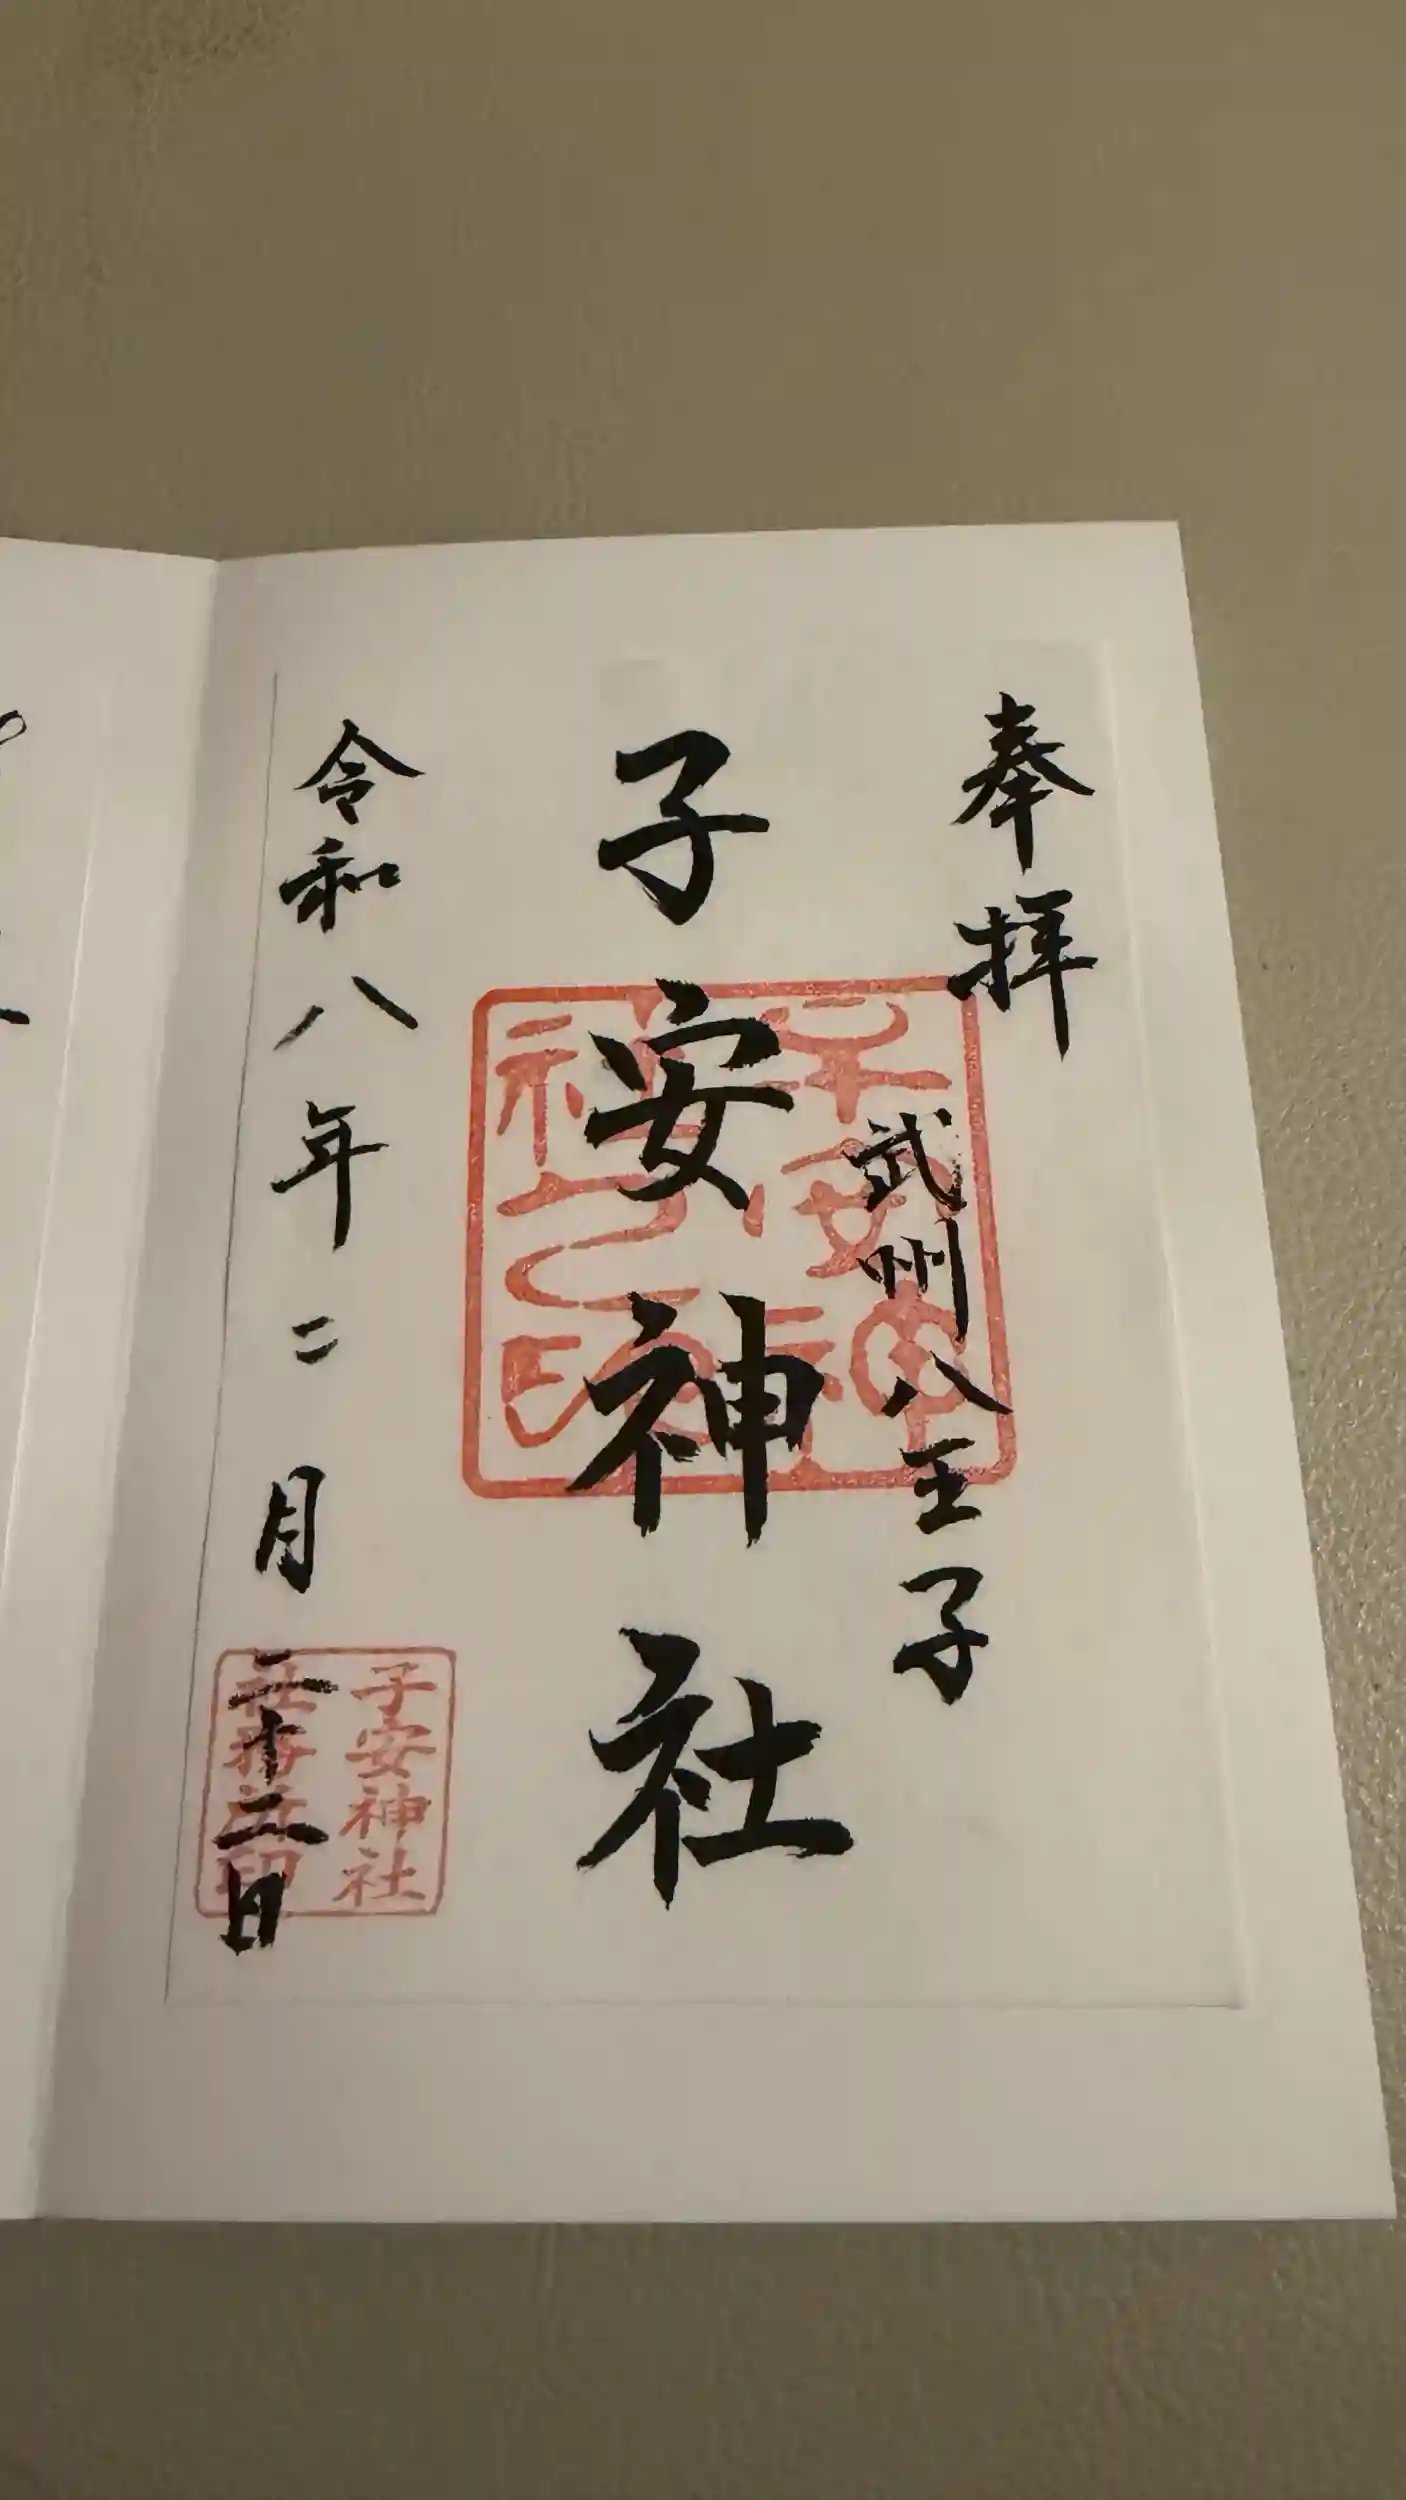 奉拝
武州八王子
子安神社
子安神
社之印
令和八年二月二十二日
子安神社
社務所印